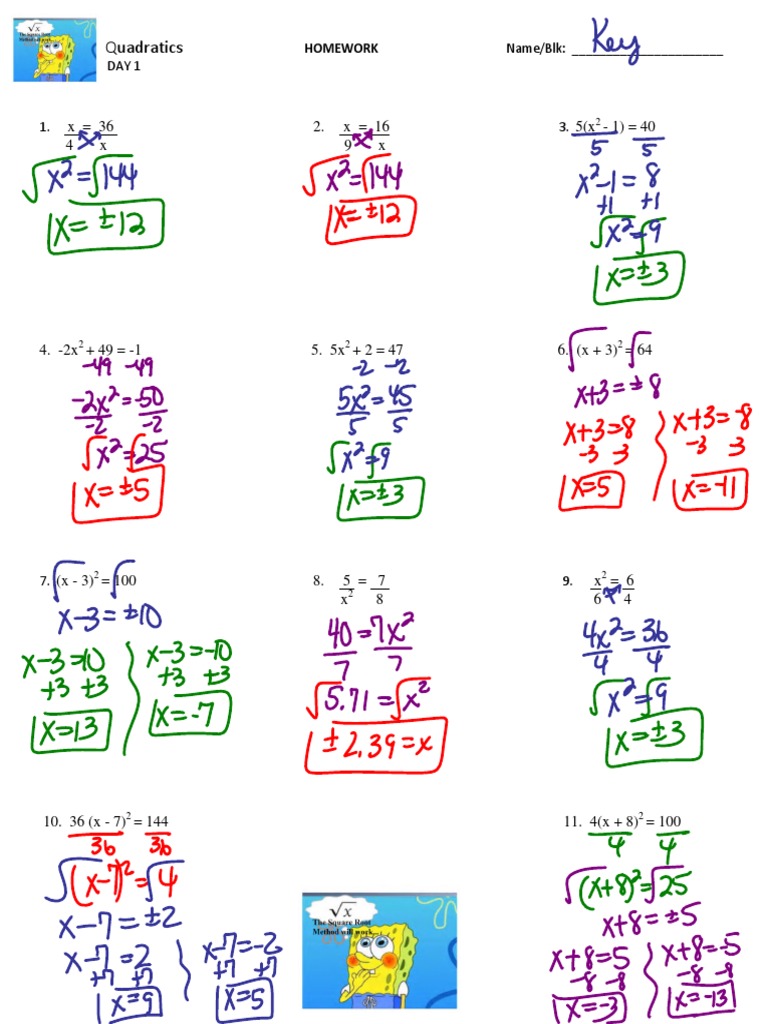 √x
The Square Root
Method will work
Quadratics HOMEWORK Name/Blk: Key
DAY 1
1. x/4 = 36/x
√x² = √144
x = ±12
2. x/9 = 16/x
√x² = √144
x = ±12
3. 5(x² - 1) = 40
5 5
x² - 1 = 8
+1 +1
√x² = √9
x = ±3
4. -2x² + 49 = -1
-49 -49
-2x² = -50
-2 -2
√x² = √25
x = ±5
5. 5x² + 2 = 47
-2 -2
5x² = 45
5 5
√x² = √9
x = ±3
6. √(x + 3)² = √64
x+3 = ±8
x+3 = 8 x+3 = -8
-3 -3 -3 3
x = 5 x = -11
7. √(x - 3)² = √100
x-3 = ±10
x-3 = 10 x-3 = -10
+3 +3 +3 +3
x = 13 x = -7
8. 5/x² = 7/8
40 = 7x²
7 7
√5.71 = √x²
±2.39 = x
9. x²/6 = 6/4
4x² = 36
4 4
√x² = √9
x = ±3
10. 36 (x - 7)² = 144
36 36
√(x-7)² = √4
x-7 = ±2
x-7 = 2 x-7 = -2
+7 +7 +7 +7
x = 9 x = 5
√x
The Square Root
Method will work
11. 4(x + 8)² = 100
4 4
√(x+8)² = √25
x+8 = ±5
x+8 = 5 x+8 = -5
-8 -8 -8 -8
x = -3 x = -13